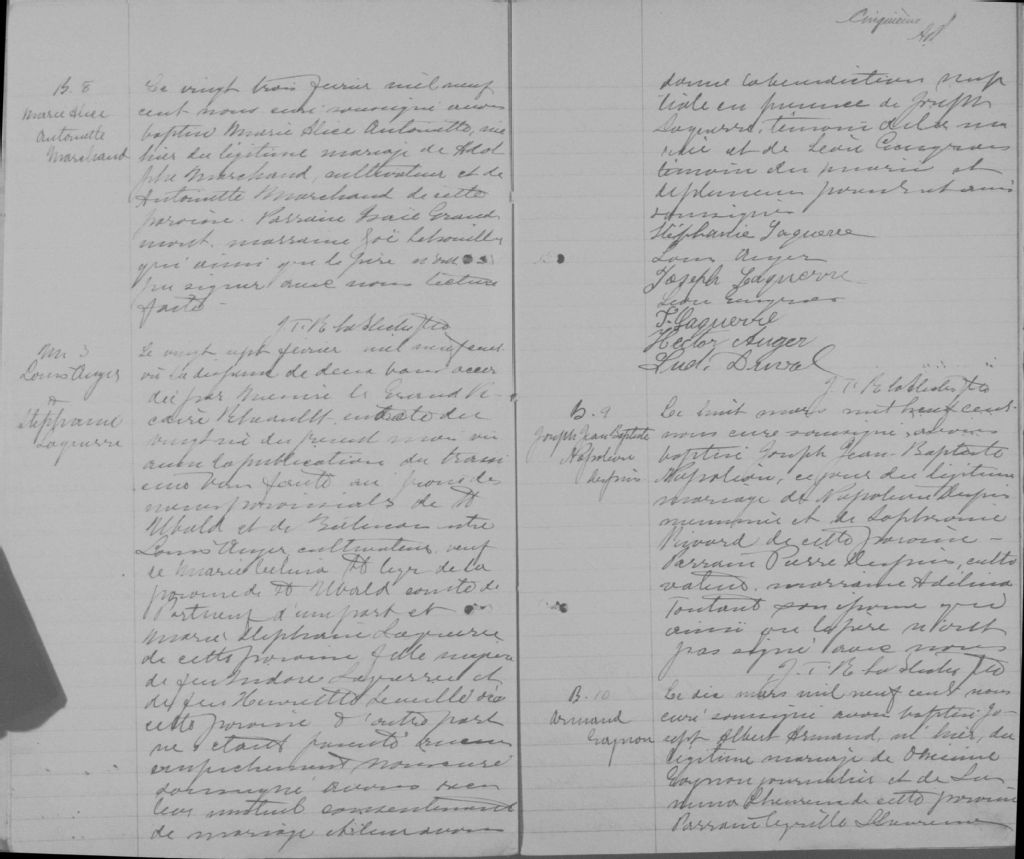 B. 8
Marie Alice
Antoinette
Marchand
Le vingt trois février mil neuf
cent nous curé soussigné avons
baptisé Marie Alice Antoinette, née
hier du légitime mariage de Adol
phe Marchand, cultivateur et de
Antoinette Marchand de cette
paroisse. Parrain Isaïe Grand
mont. marraine Zoé
qui ainsi que le père n'ont
pu signer avec nous lecture
faite
M 3
Louis Auger
et
Stéphanie
Laguerre
Le vingt sept février mil neuf cent
vu la dispense de deux bans accor
dée par Messire le Grand Vi
caire en date du
vingt du présent mois vu
aussi la publication du troisi
ème ban faite au prône de
nos messes paroissiales de St
Ubald et de entre
Louis Auger cultivateur, veuf
de Marie St de la
paroisse de St Ubald comté de
Portneuf d'une part et
Marie Stéphanie Laguerre
de cette paroisse fille majeure
de feu Isidore Laguerre et
de feu Henriette de
cette paroisse d'autre part
ne s'étant trouvé aucun
empêchement nous curé
soussigné avons reçu
leur mutuel consentement
de mariage et leur avons
Cinquième
donné la bénédiction nup
tiale en présence de Joseph
Laguerre, témoin de la ma
riée et de Léon
témoin du marié et
de plusieurs parents et amis
soussignés
Stéphanie Laguerre
Louis Auger
Joseph Laguerre
Léon
F. Laguerre
Hector Auger
Lud. Duval
B. 9
Joseph Jean Baptiste
Napoléon
Dupuis
Le huit mars mil neuf cent
nous curé soussigné, avons
baptisé Joseph Jean-Baptiste
Napoléon, ce jour du légitime
mariage de Napoléon Dupuis
et de Sophronie
Rivard de cette paroisse -
Parrain Pierre Dupuis, culti
vateur. marraine Adelina
Toutant son épouse qui
ainsi que le père n'ont
pas signé avec nous
B. 10
Armand
Gagnon
Le dix mars mil neuf cent nous
curé soussigné avons baptisé Jo
seph Albert Armand, né hier, du
légitime mariage de Onésime
Gagnon journalier et de
de cette paroisse
Parrain Cyrille